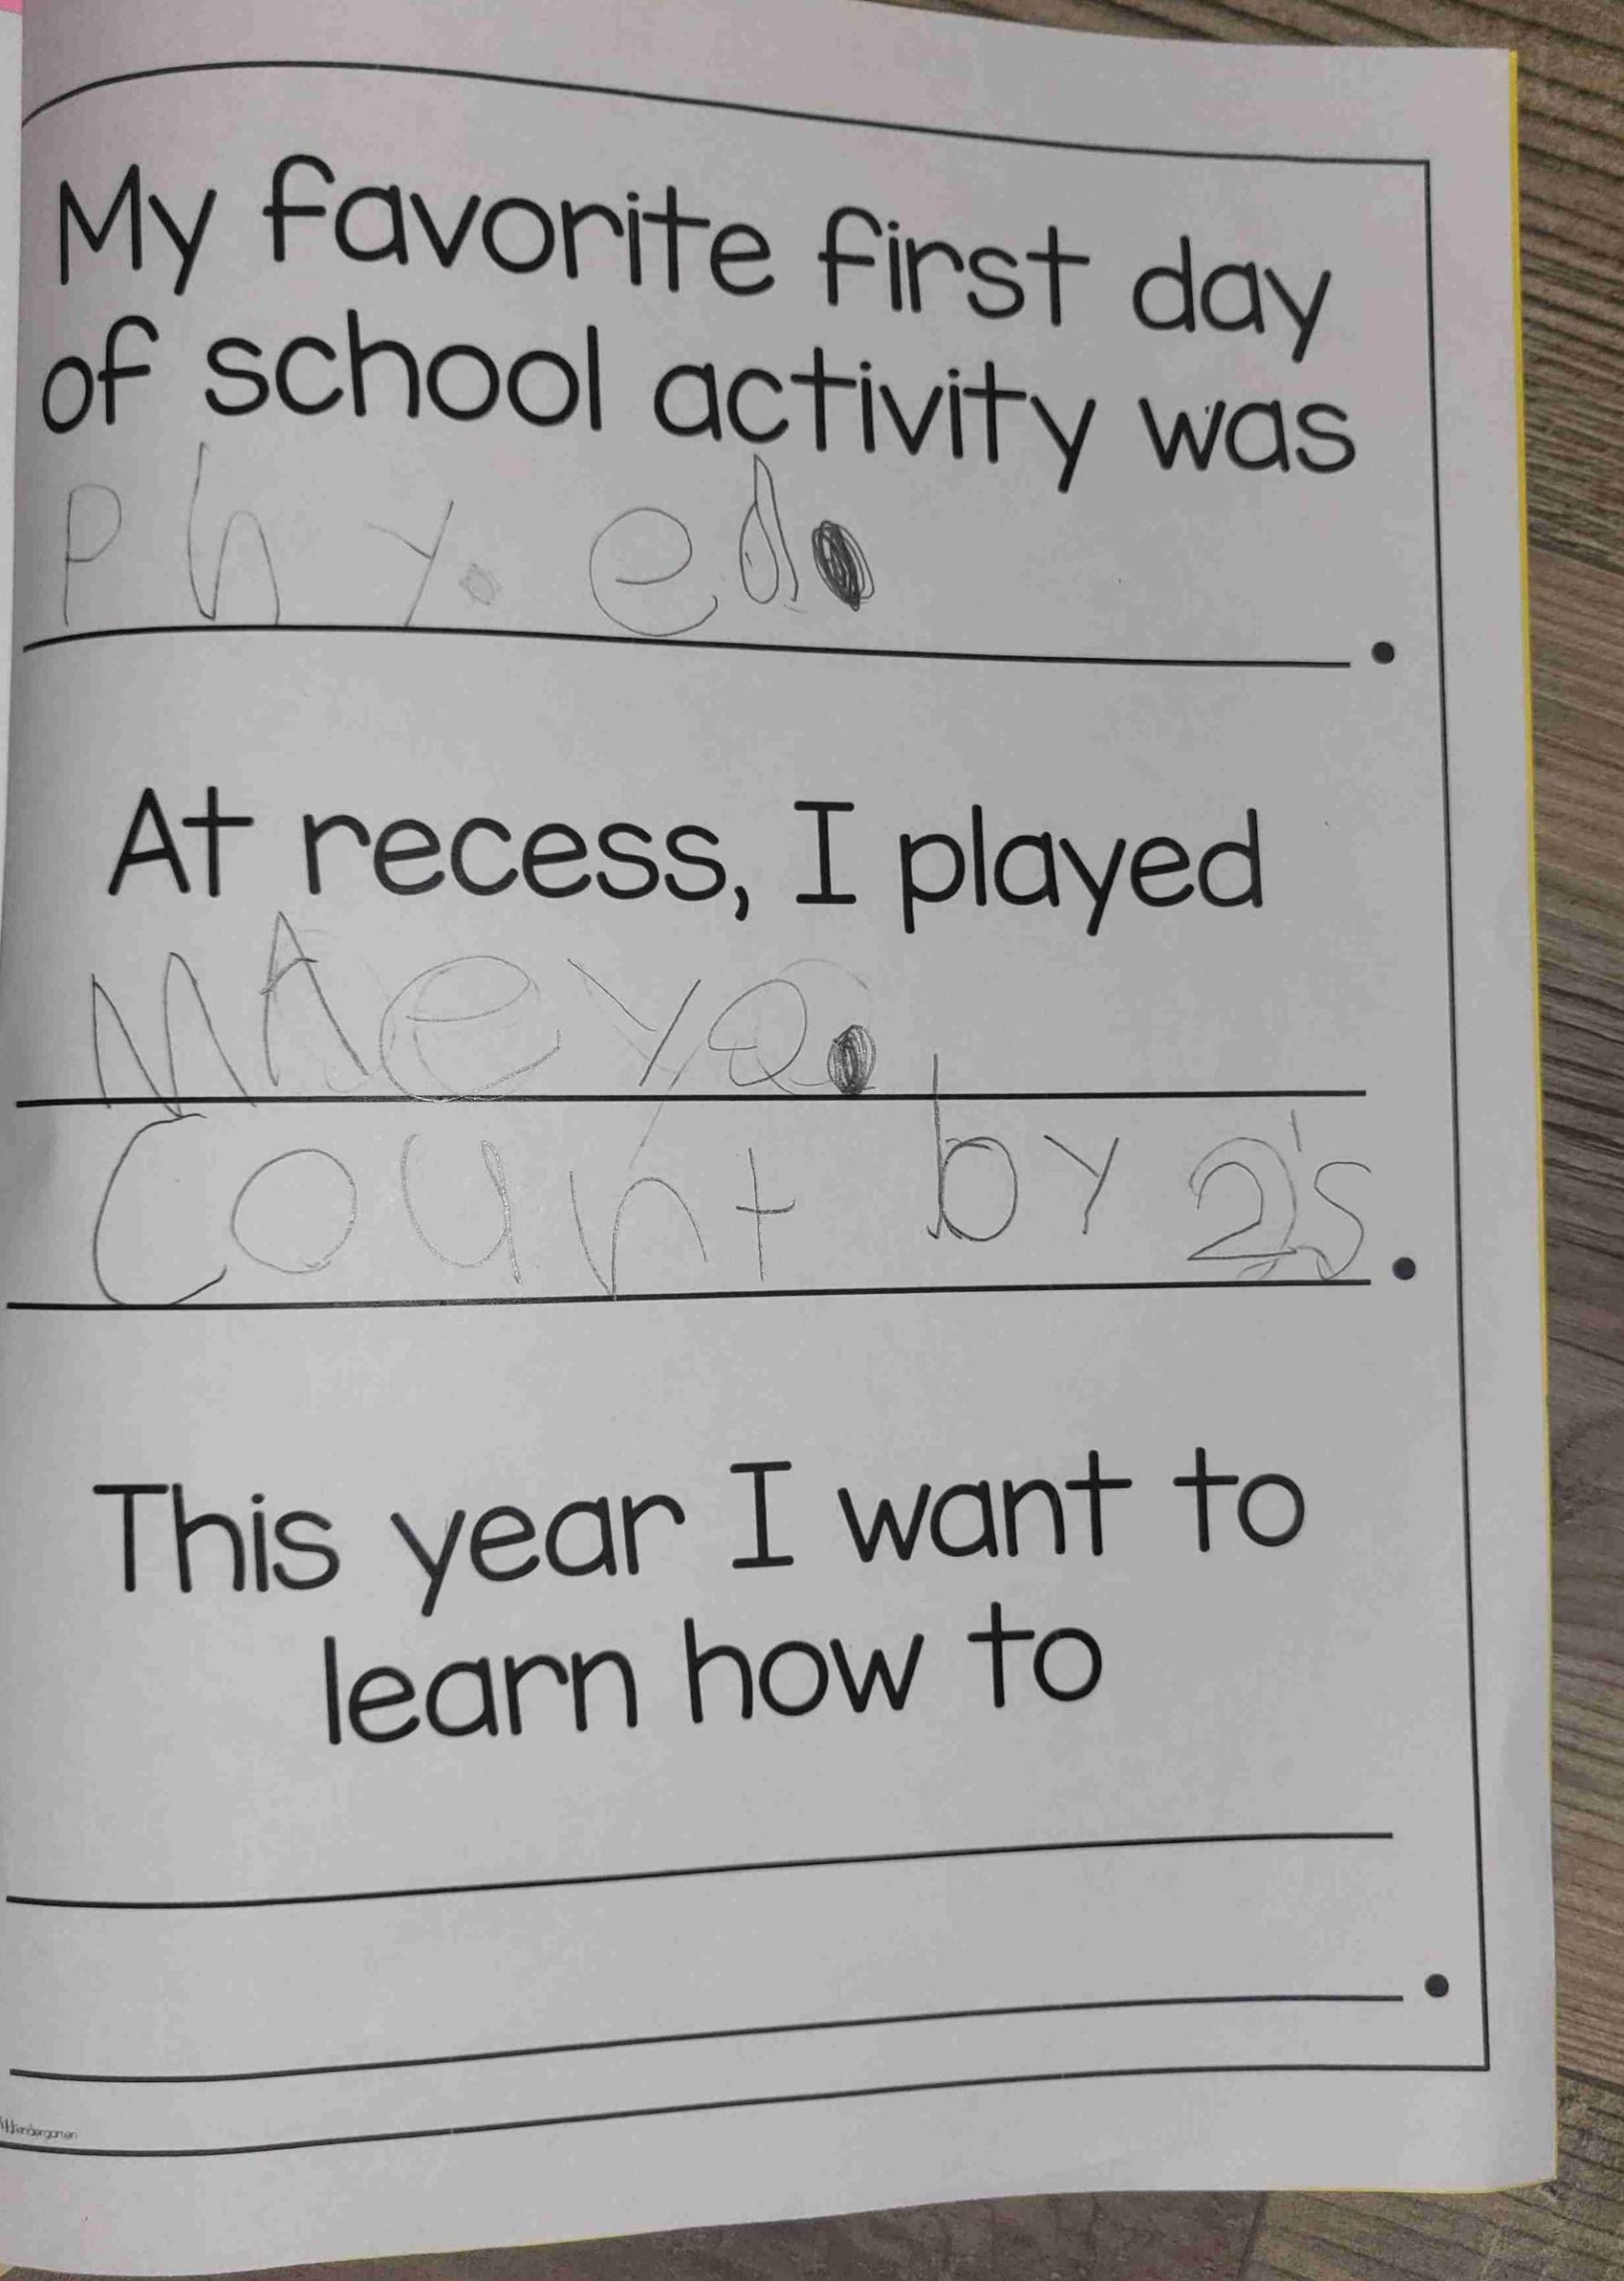 My favorite first day
of school activity was
Phy. ed.
.
At recess, I played
MAeya.
Count by 2's
.
This year I want to
learn how to
.